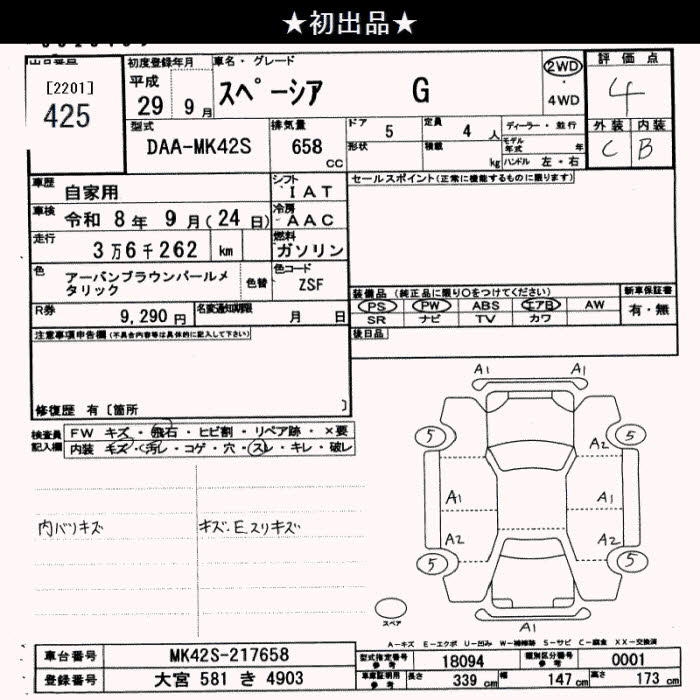 ★初出品★
[2201]
425
初度登録年月
平成
29 9月
車名・グレード
スペーシア G
2WD
・
4WD
評価点
4
外装 内装
C B
型式
DAA-MK42S
排気量
658
CC
ドア 5
定員 4 人
ディーラー・並行
形状
積載 kg
モデル年式 年
ハンドル 左・右
車歴
自家用
シフト
IAT
車検
令和 8年 9月(24日)
冷房
AAC
走行
3万6千262 km
燃料
ガソリン
色
アーバンブラウンパールメ
タリック
色替
色コード
ZSF
R券
9,290円
名変通知期限
月 日
セールスポイント(正常に機能するものに限ります)
装備品 (純正品に限り○をつけてください)
新車保証書
PS PW ABS エアB AW
有・無
SR ナビ TV カワ
後日品
注意事項申告欄(不具合内容等は具体的に記入して下さい)
修復歴 有〔箇所 〕
検査員
記入欄
FW キズ・飛石・ヒビ割・リペア跡・×要
内装 キズ・汚レ・コゲ・穴・スレ・キレ・破レ
内バツキズ
キズ・Eスリキズ
A1 A1
5 5
A2
A1 A1
A2 A2
5 5
A1
スペア
A-キズ E-エクボ U-凹み W-補修跡 S-サビ C-腐食 XX-交換済
車台番号
MK42S-217658
登録番号
大宮 581 き 4903
型式指定番号
参考
18094
類別区分番号
参考
0001
車庫証明用
参考
長さ 339 cm
幅 147 cm
高さ 173 cm